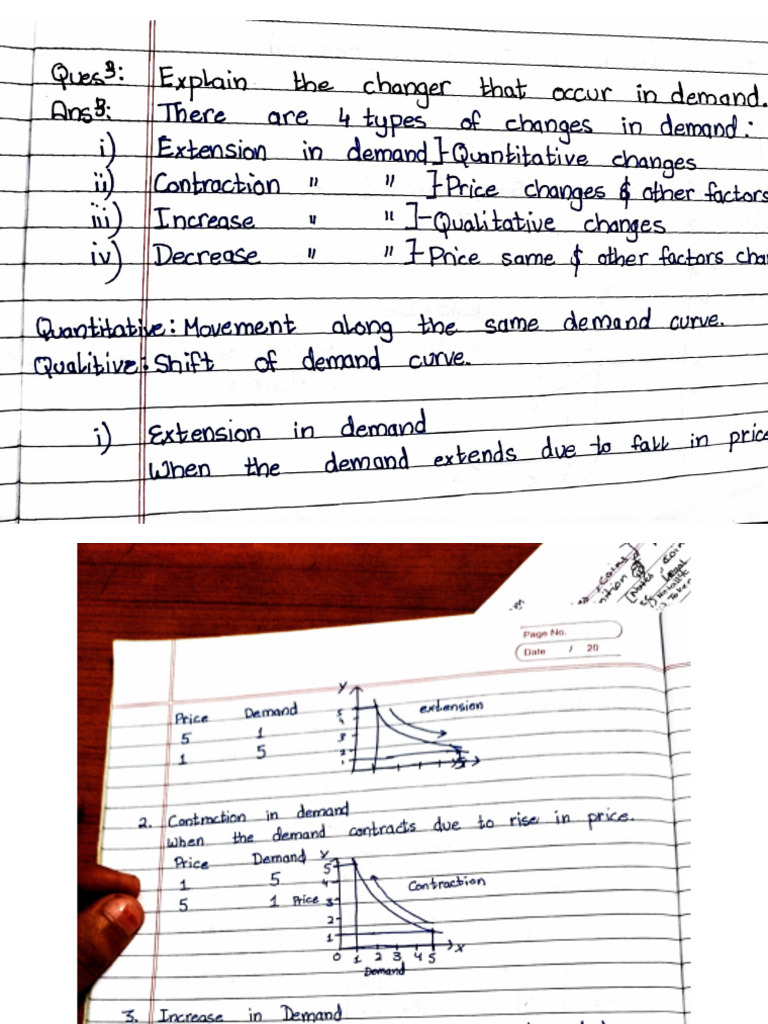 Ques 3: Explain the changer that occur in demand.
Ans 3: There are 4 types of changes in demand:
i) Extension in demand]-Quantitative changes
ii) Contraction " " ]-Price changes & other factors
iii) Increase " " ]-Qualitative changes
iv) Decrease " " ]-Price same & other factors cha
Quantitative: Movement along the same demand curve.
Qualitive: Shift of demand curve.
i) Extension in demand
When the demand extends due to fall in price
coins
nition
[Notes, Coin
Legal
Token
Page No.
Date / 20
Price Demand Y extension
5 1
1 5
5
3
2
2. Contraction in demand
When the demand contracts due to rise in price.
Price Demand Y
1 5
5 1 Price
5
4
3
2
1
Contraction
0 1 2 3 4 5 X
Demand
3. Increase in Demand